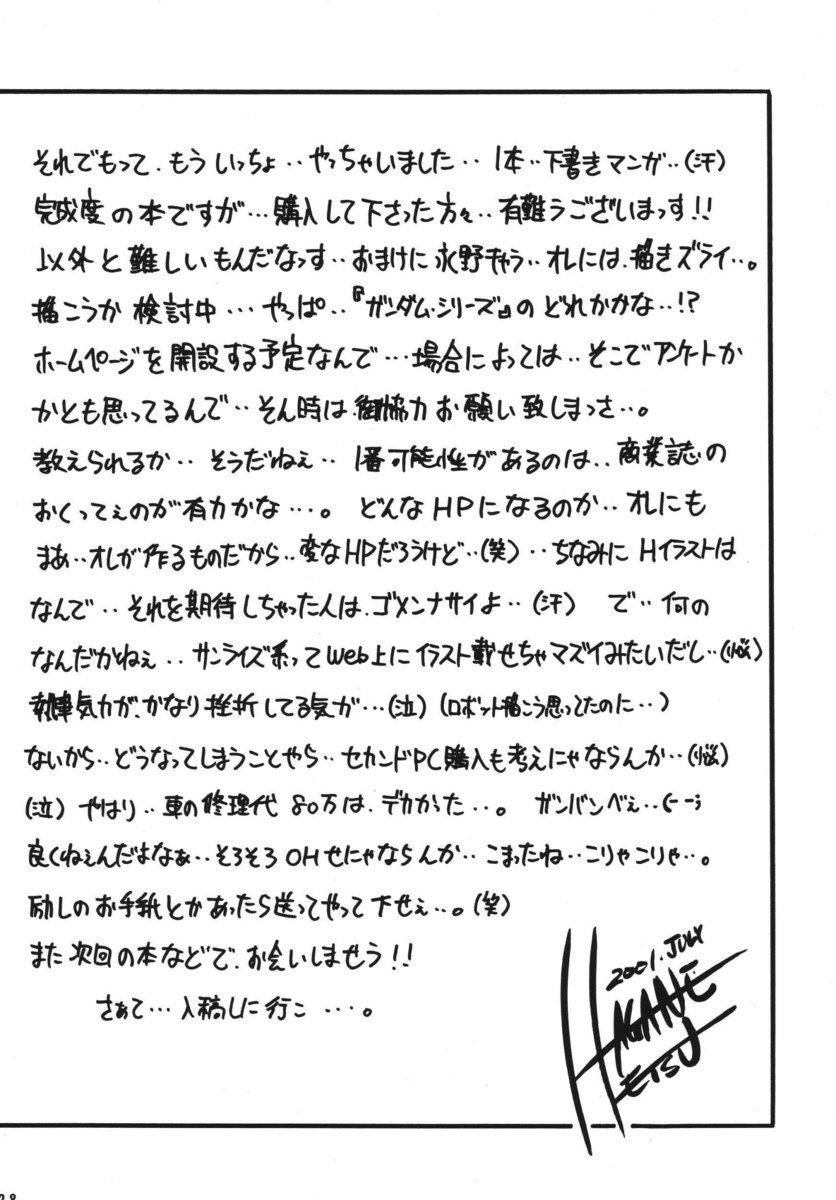 それでもって、もういっちょ‥やっちゃいました‥ 1本‥下書きマンガ‥(汗)
完成度の本ですが…購入して下さった方々‥有難うございまっす!!
以外と難しいもんだなっす‥おまけに永野キャラ‥オレには、描きズライ‥。
描こうか検討中…やっぱ‥『ガンダム・シリーズ』のどれかかな‥!?
ホームページを開設する予定なんで…場合によっては‥そこでアンケートか
かとも思ってるんで‥そん時は、御協力お願い致しまっさ‥。
教えられるか‥そうだねぇ‥1番可能性があるのは‥商業誌の
おくってぇのが有力かな…。 どんなHPになるのか‥オレにも
まあ‥オレが作るものだから‥変なHPだろうけど‥(笑)‥ちなみにHイラストは
なんで‥それを期待しちゃった人は、ゴメンナサイよ‥(汗) で‥何の
なんだかねぇ‥サンライズ系ってWeb上にイラスト載せちゃマズイみたいだし‥(悩)
気力が、かなり挫折してる気が…(泣)(ロボット描こう思ってたのに‥)
ないから‥どうなってしまうことやら‥セカンドPC購入も考えにゃならんか‥(悩)
(泣) やはり‥車の修理代80万は、デカかった‥。 ガンバンべぇ‥
良くねぇんだよなぁ‥そろそろOHせにゃならんか‥こまったね‥こりゃこりゃ‥。
励しのお手紙とかあったら送ってやって下せぇ‥。(笑)
また次回の本などで、お会いしませう!!
さぁて…入稿しに行こ…。
2001. JULY
HAGANE
ETSU
28